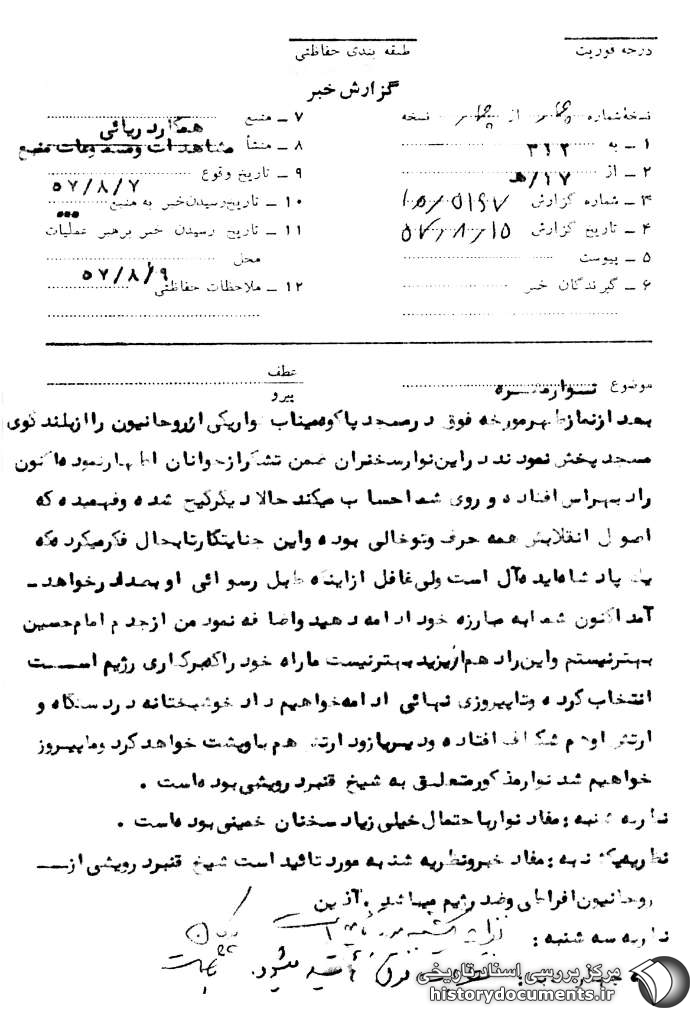 درجه فوریت
طبقه بندی حفاظتی
گزارش خبر
نسخهٔ شماره چهار از چهار نسخه
۱ ــ به ۳۱۲
۲ ــ از ۱۷/هـ
۳ ــ شماره گزارش
۴ ــ تاریخ گزارش ۵۷/۸/۱۵
۵ ــ پیوست
۶ ــ گیرندگان خبر
۷ ــ منبع همکار دریائی
۸ ــ منشأ مشاهدات و مسموعات منبع
۹ ــ تاریخ وقوع ۵۷/۸/۷
۱۰ ــ تاریخ رسیدن خبر به منبع
۱۱ ــ تاریخ رسیدن خبر برهبر عملیات
محل ۵۷/۸/۹
۱۲ ــ ملاحظات حفاظتی
موضوع نوار
عطف
پیرو
بعد از نماز ظهر مورخه فوق در مسجد پاکوه میناب نوار یکی از روحانیون را از بلندگوی
مسجد پخش نمودند در این نوار سخنران ضمن تشکر از جوانان اظهار نموده اکنون
راد بهراس افتاده و روی شما حساب میکند حالا دیگر گیج شده و فهمیده که
اصول انقلابش همه حرف و تو خالی بوده و این جنایتکار تا بحال فکر میکرده که
یک پادشاه ایده آل است ولی غافل از اینکه طبل رسوائی او بصدا در خواهد ــ
آمد اکنون شما به مبارزه خود ادامه دهید و اضافه نمود من از جدم امام حسین
بهتر نیستم و این راد هم از یزید بهتر نیست ما راه خود را که برکناری رژیم اســـت
انتخاب کرده و تا پیروزی نهائی ادامه خواهیم داد خوشبختانه در دستگاه و
ارتش او هم شکاف افتاده و دیر یا زود ارتش هم بما پشت خواهد کرد و ما پیروز
خواهیم شد نوار مذکور متعلق به شیخ قنبر درویشی بوده است .
نظریه شنبه : مفاد نوار باحتمال خیلی زیاد سخنان خمینی بوده است .
نظریه یکشنبه : مفاد خبر و نظریه شنبه مورد تائید است شیخ قنبر درویشی از ــ
روحانیون افراطی و ضد رژیم میباشد . آذین
نظریه سه شنبه : نظریه یکشنبه مورد تأیید است
تأیید میشود .
مرکز بررسی اسناد تاریخی
historydocuments.ir